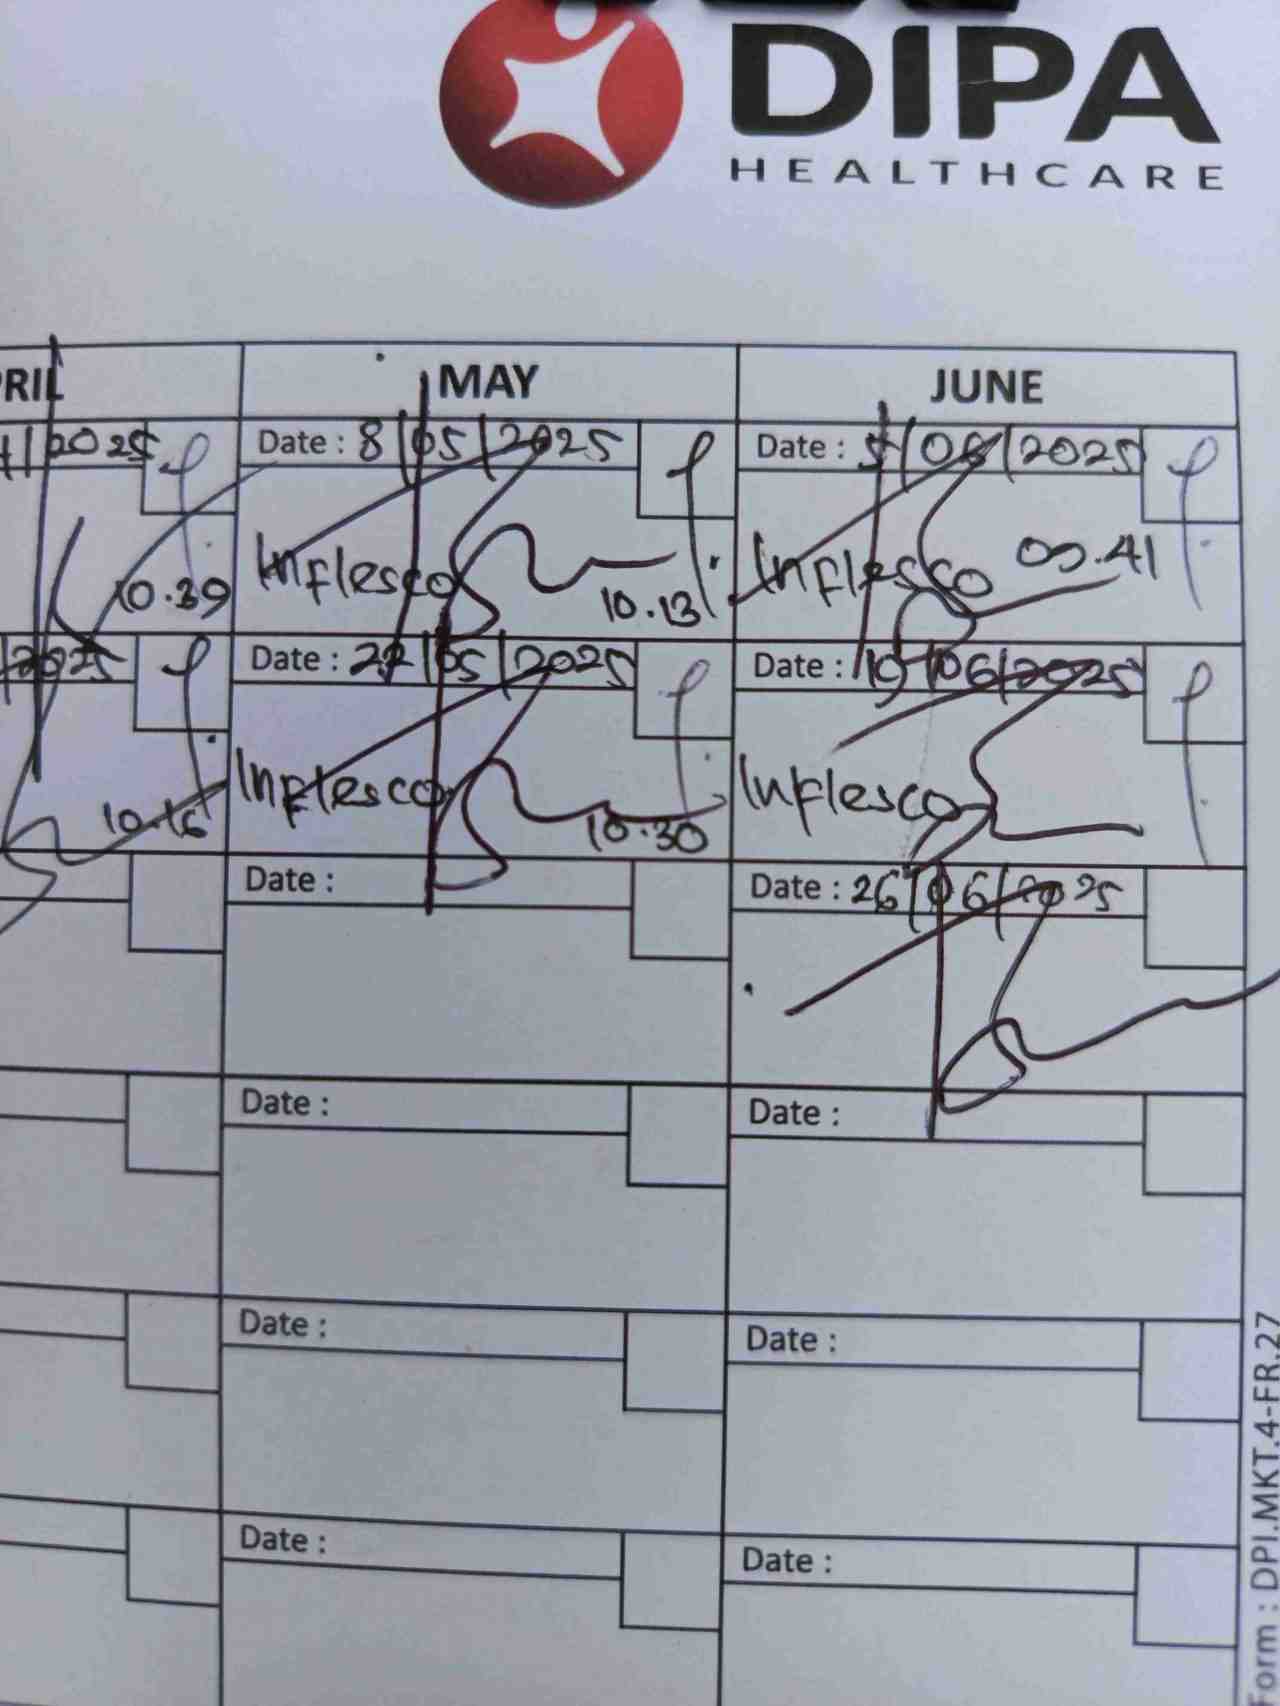 DIPA
HEALTHCARE
PRIL MAY JUNE
4/2025 Date : 8/05/2025 Date : 5/06/2025
10.39 Inflesco 10.13 Inflesco 09.41
/2025 Date : 22/05/2025 Date : 19/06/2025
10.16 Inflesco 10.30 Inflesco
Date : Date : 26/06/2025
Date : Date :
Date : Date :
Date : Date :
Form : DPI.MKT.4-FR.27